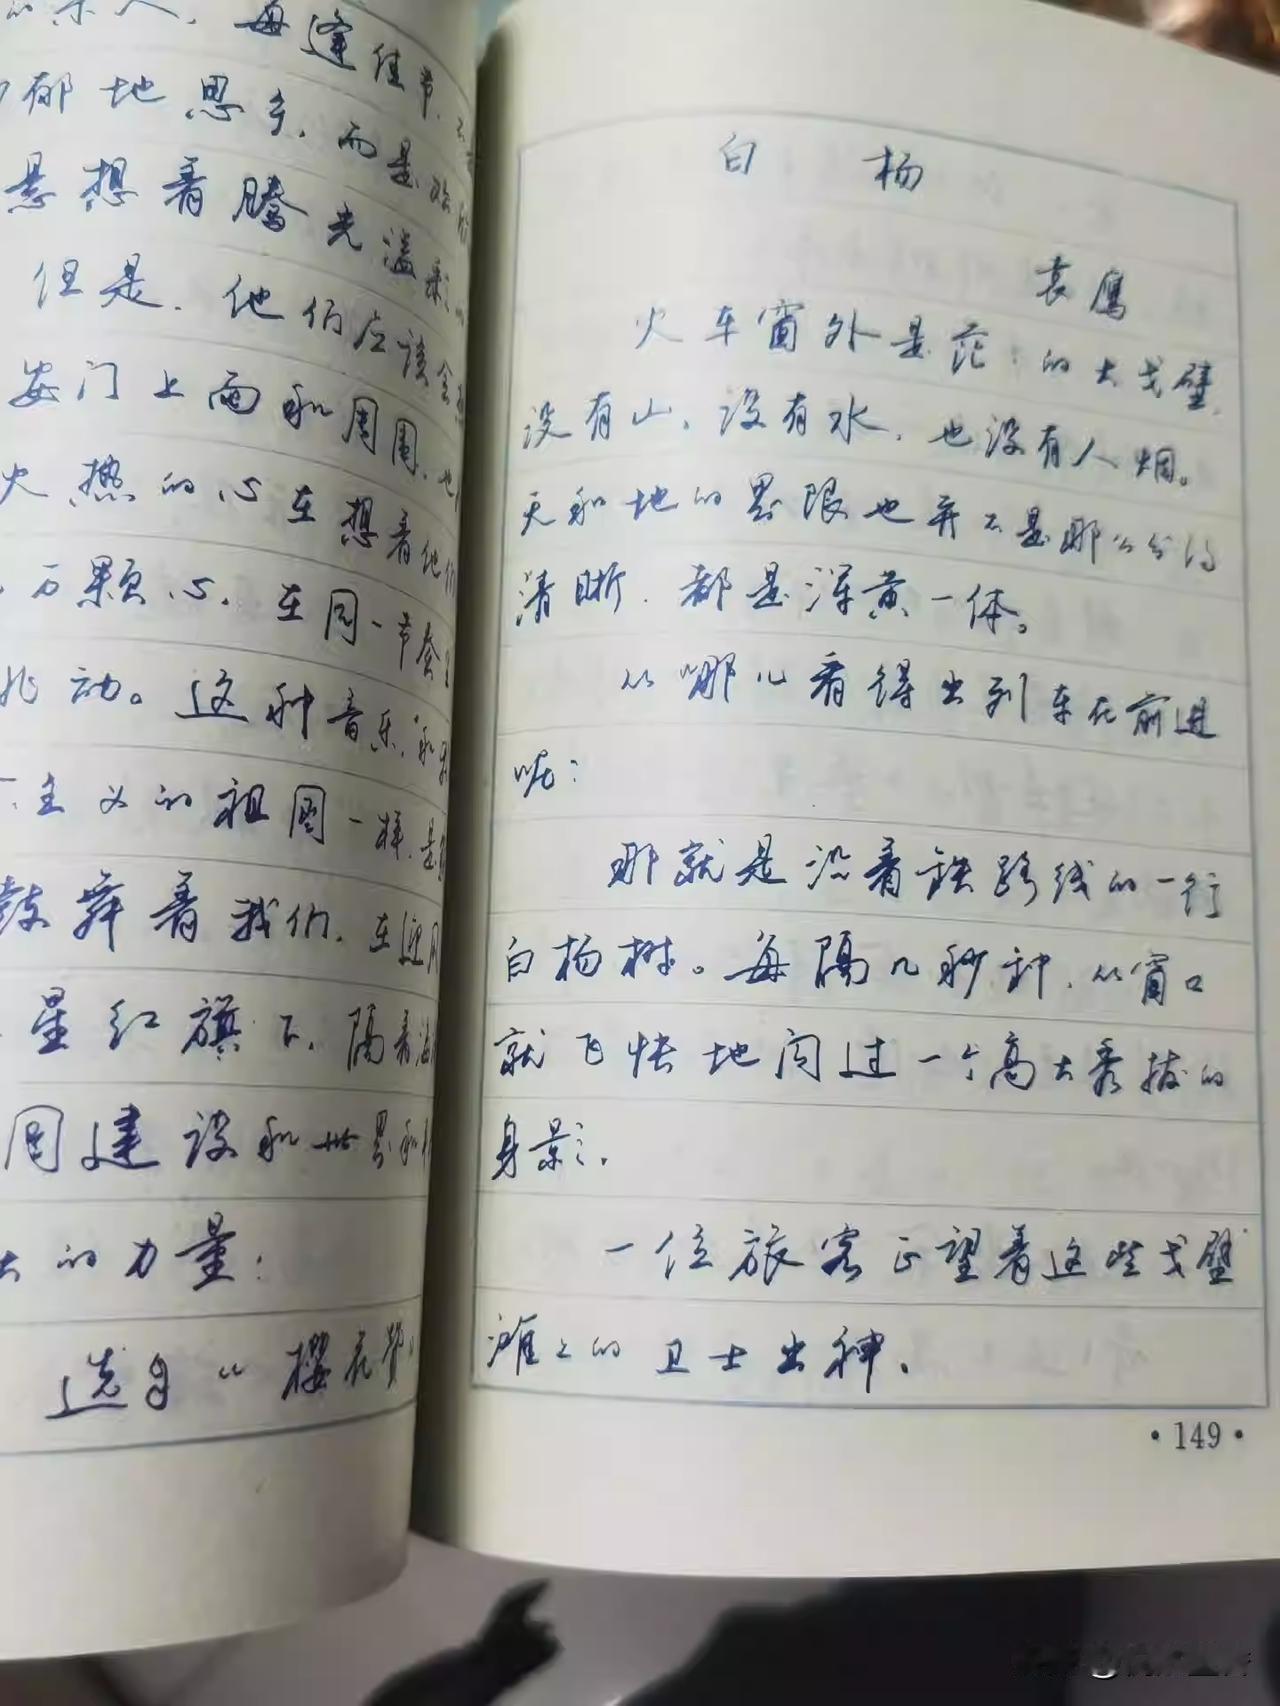 每逢佳节
郁地思乡，而是
是想着腾光溢彩
但是，他们应该会
安门上面和周围，也
火热的心在想着他们
万颗心，在同一节奏
跳动。这种音乐，和
主义的祖国一样，是
鼓舞着我们，在迎风
星红旗下，隔着海
国建设和世界和
大的力量！
选自《樱花赞
白杨
袁鹰
火车窗外是茫：的大戈壁，
没有山，没有水，也没有人烟。
天和地的界限也并不是那么分得
清晰，都是浑黄一体。
从哪儿看得出列车在前进
呢？
那就是沿着铁路线的一行
白杨树。每隔几秒种，从窗口
就飞快地闪过一个高大秀拔的
身影。
一位旅客正望着这些戈壁
滩上的卫士出神。
·149·